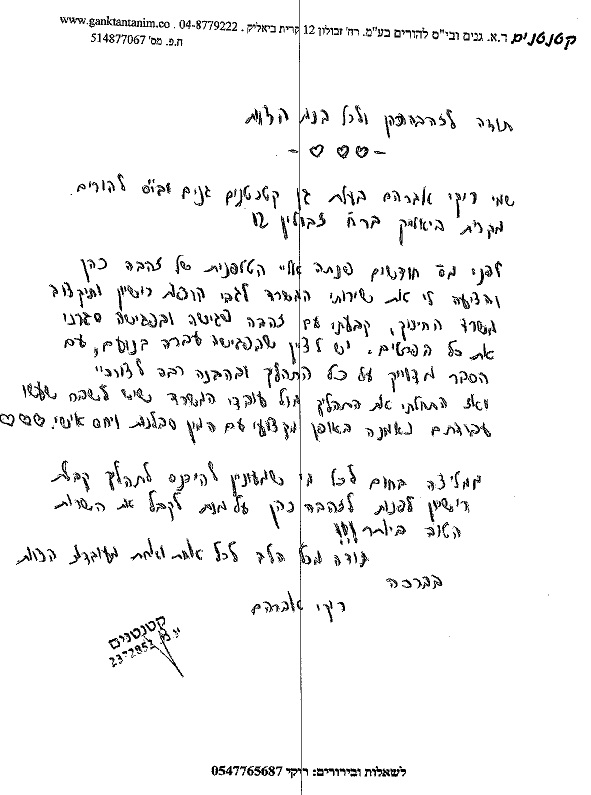 קטנטנים ר.א. גנים ובי"ס להורים בע"מ. רח' זבולון 12 קרית ביאליק . 04-8779222 . www.ganktantanim.co
ח.פ. מס' 514877067
תודה לזהבה כהן ולכל בנות הצוות
שמי ריקי אברהם בעלת גן קטנטנים גנים ובי"ס להורים
מקרית ביאליק ברח' זבולון 12
לפני מס' חודשים פנתה אליי הטלפנית של זהבה כהן
והציעה לי את שירותי המשרד לגבי הוצאת רישיון ותיקצוב
משרד החינוך, קבעתי עם זהבה פגישה ובפגישה סגרנו
את כל הפרטים. יש לציין שהפגישה עברה בנועם, עם
הסבר מדוייק על כל התהליך ובהבנה רבה לצורכיי
ואז התחלתי את התהליך מול עובדי המשרד שיש לשבח שעשו
עבודתם נאמנה באופן מקצועי עם המון סבלנות ויחס אישי.
ממליצה בחום לכל מי שמעוניין להיכנס לתהליך קבלת
רישיון לפנות לזהבה כהן על מנת לקבל את השרות
הטוב ביותר !!!
תודה מכל הלב לכל אחת ואחת מעובדות הצוות
בברכה
ריקי אברהם
קטנטנים
לשאלות ובירורים: ריקי 0547765687